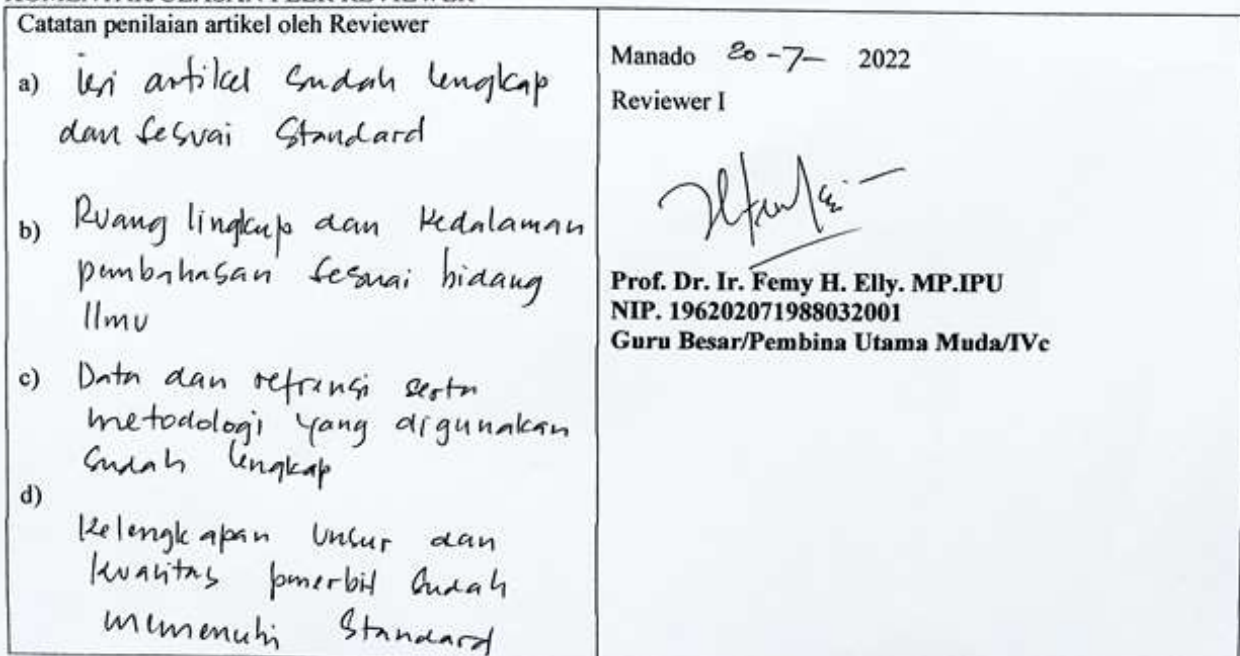 Catatan penilaian artikel oleh Reviewer
a) isi artikel sudah lengkap
dan sesuai Standard
b) Ruang lingkup dan kedalaman
pembahasan sesuai bidang
Ilmu
c) Data dan refrensi serta
metodologi yang digunakan
sudah lengkap
d)
Kelengkapan unsur dan
kualitas penerbit sudah
memenuhi Standard
Manado 20-7- 2022
Reviewer I
Prof. Dr. Ir. Femy H. Elly. MP.IPU
NIP. 196202071988032001
Guru Besar/Pembina Utama Muda/IVc